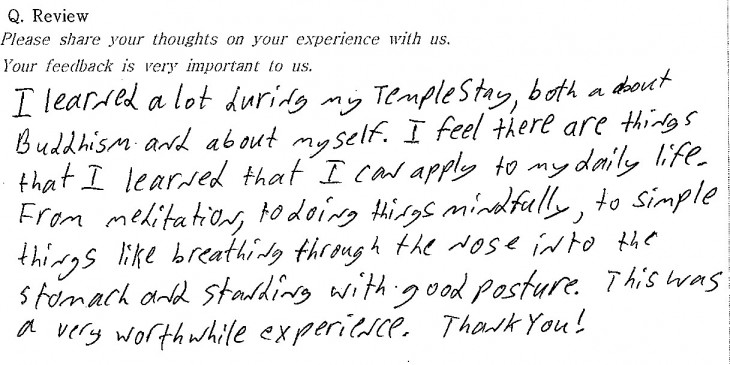 Q. Review
Please share your thoughts on your experience with us.
Your feedback is very important to us.
I learned a lot during my TempleStay, both a about
Buddhism and about myself. I feel there are things
that I learned that I can apply to my daily life.
From meditation, to doing things mindfully, to simple
things like breathing through the nose into the
stomach and standing with good posture. This was
a very worthwhile experience. Thank You!